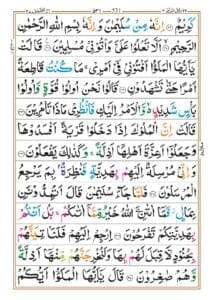 كَرِيْمٌ ۝ اِنَّهٗ مِنْ سُلَيْمٰنَ وَاِنَّهٗ بِسْمِ اللّٰهِ الرَّحْمٰنِ
الرَّحِيْمِ ۝ اَلَّا تَعْلُوْا عَلَیَّ وَاْتُوْنِیْ مُسْلِمِيْنَ ۝ قَالَتْ
يٰۤاَيُّهَا الْمَلَؤُا اَفْتُوْنِیْ فِیْۤ اَمْرِیْ ۚ مَا كُنْتُ قَاطِعَةً
اَمْرًا حَتّٰی تَشْهَدُوْنِ ۝ قَالُوْا نَحْنُ اُولُوْا قُوَّةٍ وَّاُولُوْا
بَاْسٍ شَدِيْدٍ ۙ وَّالْاَمْرُ اِلَيْكِ فَانْظُرِیْ مَاذَا تَاْمُرِيْنَ ۝
قَالَتْ اِنَّ الْمُلُوْكَ اِذَا دَخَلُوْا قَرْيَةً اَفْسَدُوْهَا
وَجَعَلُوْۤا اَعِزَّةَ اَهْلِهَاۤ اَذِلَّةً ۚ وَكَذٰلِكَ يَفْعَلُوْنَ ۝
وَاِنِّیْ مُرْسِلَةٌ اِلَيْهِمْ بِهَدِيَّةٍ فَنٰظِرَةٌۢ بِمَ يَرْجِعُ
الْمُرْسَلُوْنَ ۝ فَلَمَّا جَآءَ سُلَيْمٰنَ قَالَ اَتُمِدُّوْنَنِ
بِمَالٍ ؗ فَمَاۤ اٰتٰىنِۦَ اللّٰهُ خَيْرٌ مِّمَّاۤ اٰتٰىكُمْ ۚ بَلْ اَنْتُمْ
بِهَدِيَّتِكُمْ تَفْرَحُوْنَ ۝ اِرْجِعْ اِلَيْهِمْ فَلَنَاْتِيَنَّهُمْ
بِجُنُوْدٍ لَّا قِبَلَ لَهُمْ بِهَا وَلَنُخْرِجَنَّهُمْ مِّنْهَاۤ اَذِلَّةً
وَّهُمْ صٰغِرُوْنَ ۝ قَالَ يٰۤاَيُّهَا الْمَلَؤُا اَيُّكُمْ